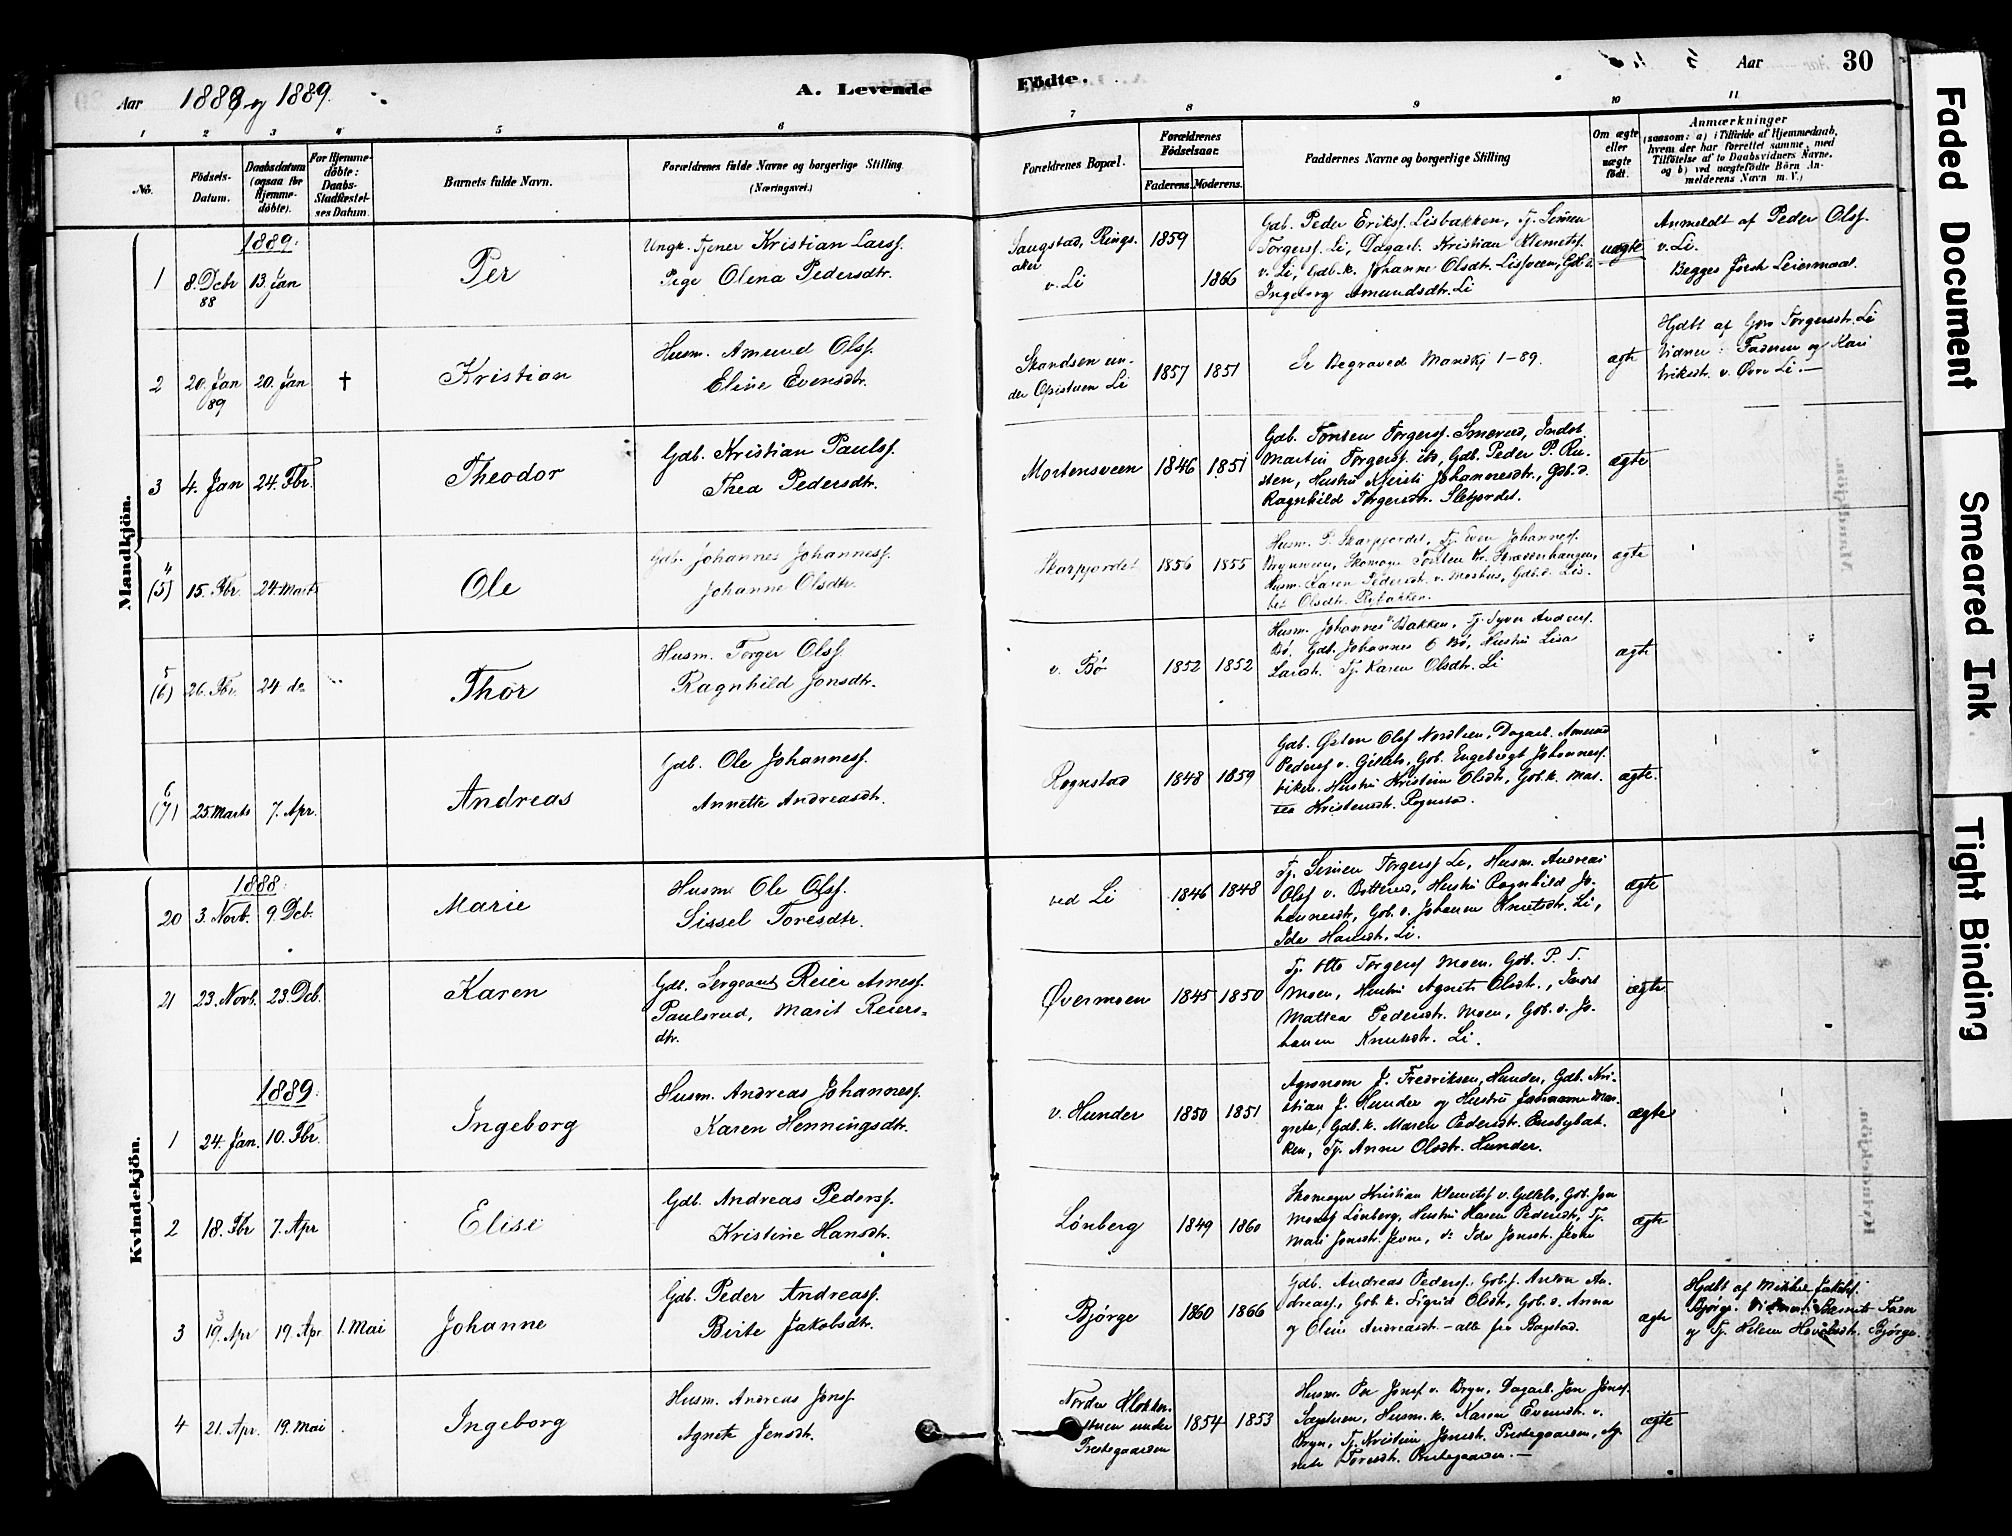 Aar 1888 og 1889. A. Levende Födte. Aar 30
1 2 3 4 5 6 7 8 9 10 11
No.
Födsels-Datum.
Daabsdatum (ogsaa for Hjemmedöbte).
For Hjemmedöbte: Daabs-Stadfæstelses Datum.
Barnets fulde Navn.
Forældrenes fulde Navne og borgerlige Stilling
(Næringsvei.)
Forældrenes Bopæl.
Forældrenes Födselsaar.
Faderens. Moderens.
Faddernes Navne og borgerlige Stilling
Om ægte eller uægte födt.
Anmærkninger
(saasom: a) i Tilfælde af Hjemmedaab,
hvem der har forrettet samme, med
Tilföielse af to Daabsvidners Navne,
og b) ved uægtefödte Börn Anmelderens Navn m. V.)
Mandkjön.
1889.
1 8. Debr 88 13. Jan Per
Ungk. Tjener Kristian Larss.
Pige Olena Pedersdtr.
Saugstad, Ringsaker
v. Li
1859 1866
Gdb. Peder Erikss. Lisbakken, Tj. Simen
Torgerss. Li, Dagarb. Kristian Klemetss.
v. Li, Gdb. k. Johanne Olsdtr. Lisveen, Gdb. d.
Ingeborg Amundsdtr. Li
uægte
Anmeldt af Peder Olss.
v. Li.
Begges første Leiermaal.
2 20. Jan 89 20. Jan † Kristian
Husm. Amund Olss.
Eline Evensdtr.
Skandsen under Opistuen Li
1857 1851
Se Begraved Mandkj 1-89.
ægte
Hjdbt af Guro Torgersdtr. Li
Vidner: Faderen og Kari
Eriksdtr. v. Øvre Li.—
3 4. Jan 24. Fbr. Theodor
Gdb. Kristian Paulss.
Thea Pedersdtr.
Mortensveen
1846 1851
Gdb. Torsten Torgerss. Smerud, Indst.
Martin Torgerss. ibd, Gdb. Peder P. Rusten, Hustru Kjersti Johannesdtr., Gdb. d.
Ragnhild Torgersdtr. Slefjordet.
ægte
4 (5) 15. Fbr. 24. Marts Ole
Gdb. Johannes Johanness.
Johanne Olsdtr.
Skarpjordet
1856 1855
Husm. P. Skarpjordet, Tj. Even Johanness.
Husm. Karen Pedersdtr. v. Moshus, Gdb. d. Lisbet Olsdtr.
ægte
5 (6) 26. Fbr. 24 do Thor
Husm. Torger Olss.
Ragnhild Jonsdtr.
v. Bø
1852 1852
Husm. Johannes Bakken, Tj. Syver Anderss.
Bø, Gdb. Johannes O Bø, Hustru Lisa
Larsdtr. Tj. Karen Olsdtr. Li
ægte
6 (7) 25. Marts 7. Apr. Andreas
Gdb. Ole Johanness.
Annette Andreasdtr.
Rognstad
1848 1859
Gdb. Østen Olss Nordlien, Dagarb. Amund
Pederss v. Gillebo, Gdb. Engebregt Johanness.
Hustru Kristine Olsdtr, Gdb. k. Mattea Kristensdtr. Rognstad.
ægte.
Kvindekjön.
1888.
20 3. Novb. 9. Deb. Marie
Husm. Ole Olss.
Sissel Toresdtr.
ved Li
1846 1848
Tj. Simen Torgerss Li, Husm. Andreas
Olss v. Botterud, Hustru Ragnhild Johannesdtr, Gdb. d. Johanne Knutsdtr. Li,
Ida Hansdtr. Li.
ægte
21 23. Novb. 23. Deb. Karen
Gdb. Sergeant Reier Arness.
Paulsrud, Marit Reiersdtr.
Øvermoen
1845 1850
Tj. Otto Torgerss Moen. Gdb. P. T.
Moen, Hustru Agnete Olsdtr.,
Mattea Pedersdtr. Moen, Gdb. d. Johanne Knutsdtr. Li.
ægte
1889.
1 24. Jan. 10. Fbr. Ingeborg
Husm. Andreas Johanness.
Karen Henningsdtr.
v. Hunder
1850 1851
Agronom J. Fredriksen, Hunder, Gdb. Kristian J. Hunder og Hustru Johanne Margrete, Gdb. k. Maren Pedersdtr. Brubybakken, Tj. Anne Olsdtr. Hunder.
ægte
2 18. Fbr 7. Apr Elise
Gdb. Andreas Pederss.
Kristine Hansdtr.
Lönberg
1849 1860
Skomager Kristian Klemetss v. Gillebo, Gdb. Jon
Lönberg, Hustru Karen Pedersdtr., Tj.
Mari Jonsdtr. Jevne, d: Ida Jonsdtr. Jevne
ægte
3 19. Apr 19. Apr 1. Mai Johanne
Gdb. Peder Andreass.
Birte Jakobsdtr.
Bjørge
1860 1866
Gdb. Andreas Pederss., Gdb. s. Anton Andreass., Gdb. k. Sigrid Olsdtr, Gdb. d. Anna
og Oline Andreasdtr — alle fra Bagstad.
ægte
Hjdbt af Mikkel Jakobss.
Bjørge.
og Tj. Helene Bjørge.
4 21. Apr. 19. Mai Ingeborg
Husm. Andreas Jonss.
Agnete Jensdtr.
Nordre Klokkerstuen under
Prestegaarden
1854 1853
Husm. Per Jonss v. Bryn, Dagarb. Jon Jonss.
Husm. k. Karen Evensdtr. v.
Bryn, Tj. Kristine Jonsdtr. Prestegaarden, Agnete Toresdtr. Prestegaarden.—
ægte
Faded Document
Smeared Ink
Tight Binding